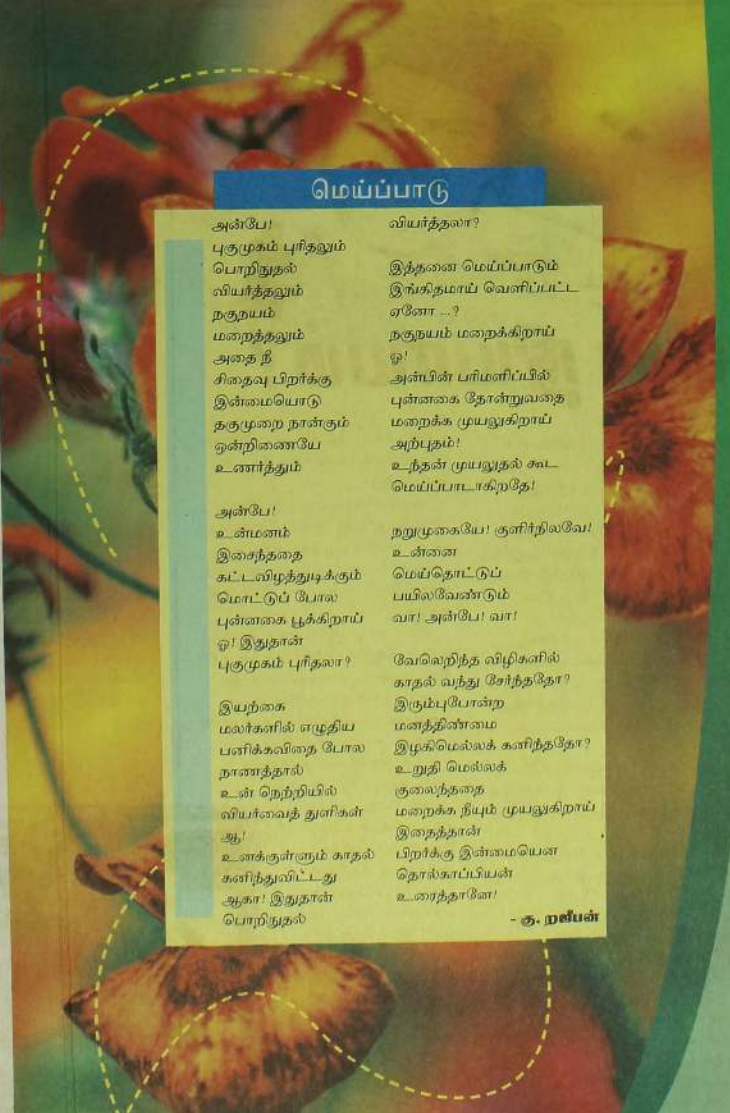 மெய்ப்பாடு
அன்பே!
புகுமுகம் புரிதலும்
பொறிநுதல்
வியர்த்தலும்
நகுநயம்
மறைத்தலும்
அதை நீ
சிதைவு பிறர்க்கு
இன்மையொடு
தகுமுறை நான்கும்
ஒன்றிணையே
உணர்த்தும்
அன்பே!
உன்மனம்
இசைந்ததை
கட்டவிழத்துடிக்கும்
மொட்டுப் போல
புன்னகை பூக்கிறாய்
ஓ! இதுதான்
புகுமுகம் புரிதலா?
இயற்கை
மலர்களில் எழுதிய
பனிக்கவிதை போல
நாணத்தால்
உன் நெற்றியில்
வியர்வைத் துளிகள்
ஆ!
உனக்குள்ளும் காதல்
கனிந்துவிட்டது
ஆகா! இதுதான்
பொறிநுதல்
வியர்த்தலா?
இத்தனை மெய்ப்பாடும்
இங்கிதமாய் வெளிப்பட்ட
ஏனோ ...?
நகுநயம் மறைக்கிறாய்
ஓ!
அன்பின் பரிமளிப்பில்
புன்னகை தோன்றுவதை
மறைக்க முயலுகிறாய்
அற்புதம்!
உந்தன் முயலுதல் கூட
மெய்ப்பாடாகிறதே!
நறுமுகையே! குளிர்நிலவே!
உன்னை
மெய்தொட்டுப்
பயிலவேண்டும்
வா! அன்பே! வா!
வேலெறிந்த விழிகளில்
காதல் வந்து சேர்ந்ததோ?
இரும்புபோன்ற
மனத்திண்மை
இழகிமெல்லக் கனிந்ததோ?
உறுதி மெல்லக்
குலைந்ததை
மறைக்க நீயும் முயலுகிறாய்
இதைத்தான்
பிறர்க்கு இன்மையென
தொல்காப்பியன்
உரைத்தானே!
- கு. றஜீபன்